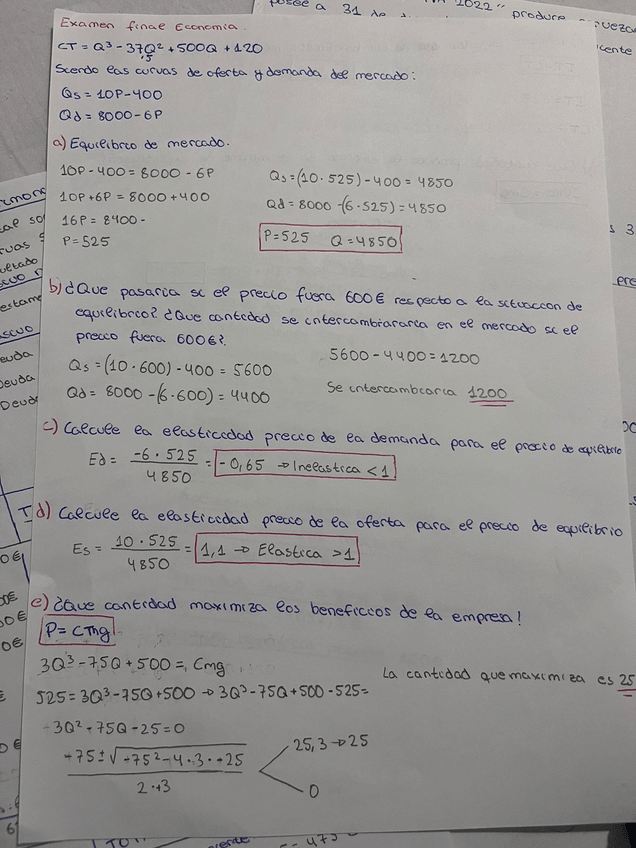 Examen final Economia.
CT = Q³ - 37Q² + 500Q + 120
,5
Siendo las curvas de oferta y demanda del mercado:
Qs = 10P - 400
Qd = 8000 - 6P
a) Equilibrio de mercado.
10P - 400 = 8000 - 6P
10P + 6P = 8000 + 400
16P = 8400 -
P = 525
Qs = (10 · 525) - 400 = 4850
Qd = 8000 - (6 · 525) = 4850
P = 525 Q = 4850
b) ¿Que pasaria si el precio fuera 600€ respecto a la situacion de
equilibrio? ¿Que cantidad se intercambiararia en el mercado si el
precio fuera 600€?.
Qs = (10 · 600) - 400 = 5600
Qd = 8000 - (6 · 600) = 4400
5600 - 4400 = 1200
Se intercambiaria 1200
c) Calcule la elasticidad precio de la demanda para el precio de equilibrio
Ed = -6 · 525 / 4850 = -0,65 → Inelastica < 1
d) Calcule la elasticidad precio de la oferta para el precio de equilibrio
Es = 10 · 525 / 4850 = 1,1 → Elastica > 1
e) ¿Que cantidad maximiza los beneficios de la empresa!
P = CMg
3Q³ - 75Q + 500 = Cmg
525 = 3Q³ - 75Q + 500 → 3Q³ - 75Q + 500 - 525 =
La cantidad que maximiza es 25
-3Q² + 75Q - 25 = 0
+75 ± √+75² - 4 · 3 · +25 / 2 · +3
25,3 → 25
0
posee a 31 de
2022" produce